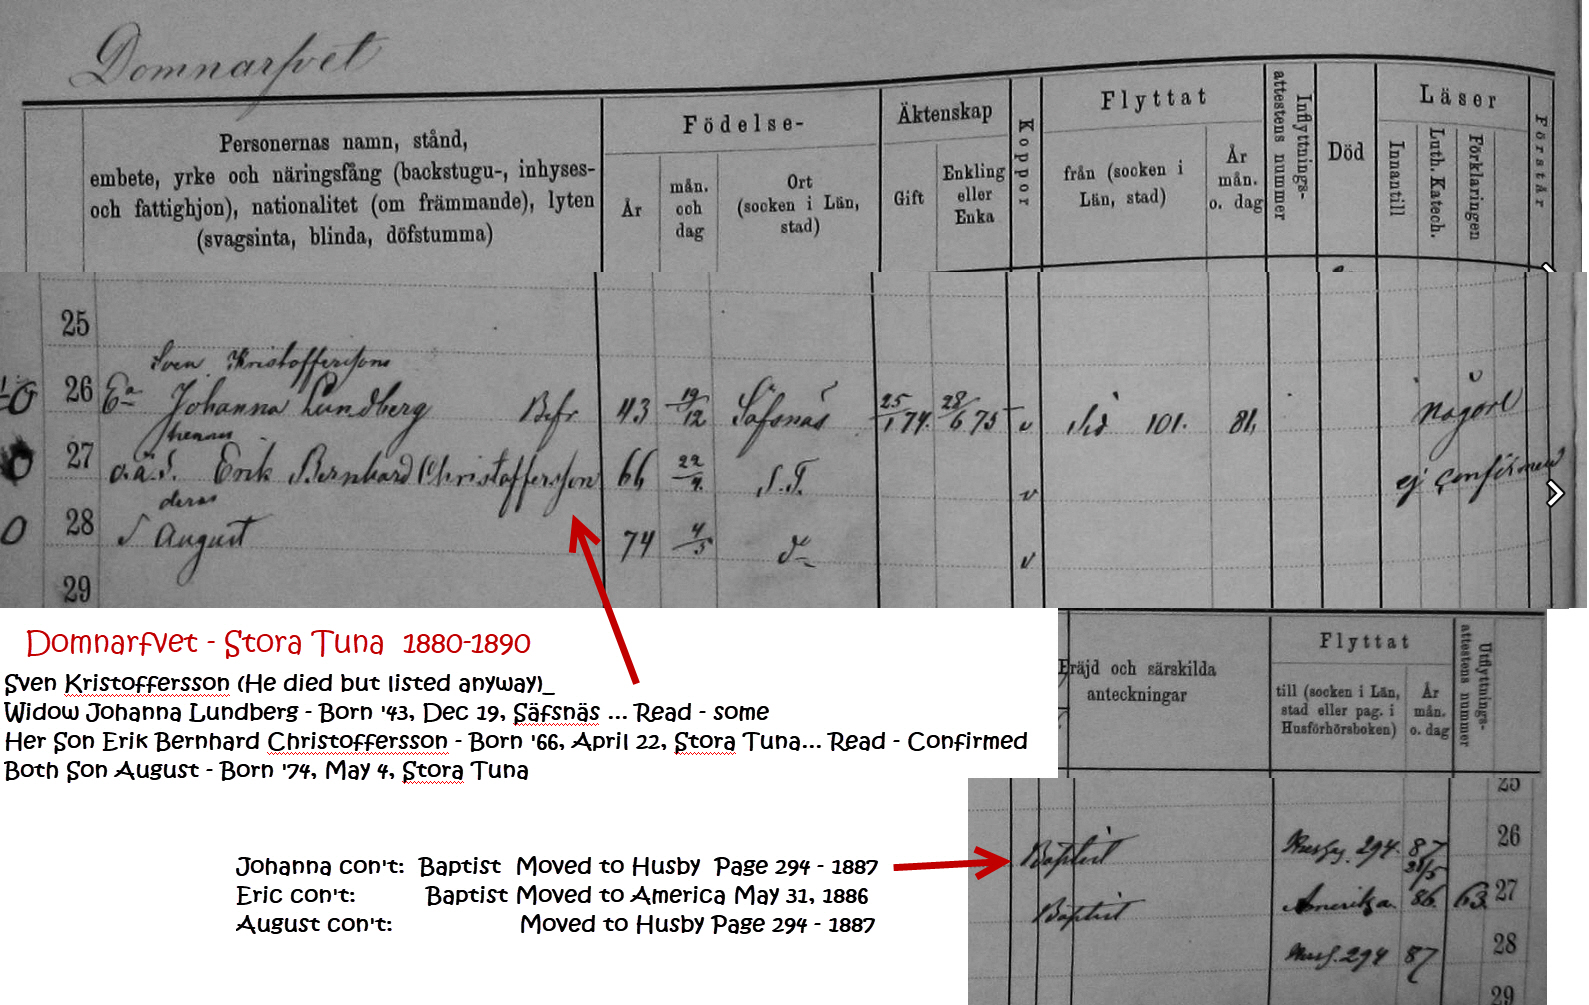 Domnarfvet
Personernas namn, stånd,
embete, yrke och näringsfång (backstugu-, inhyses-
och fattighjon), nationalitet (om främmande), lyten
(svagsinta, blinda, döfstumma)
Födelse-
År
mån.
och
dag
Ort
(socken i Län,
stad)
Äktenskap
Gift
Enkling
eller
Enka
Koppor
Flyttat
från (socken i
Län, stad)
År
mån.
o. dag
Inflyttnings-
attestens nummer
Död
Läser
Innantill
Luth. Katech.
Förklaringen
Förstår
25
Sven Kristofferssons
26 Ea Johanna Lundberg Bfr 43 19/12 Säfsnäs 25/1 74. 28/6 75 v Sid 101. 81. någorl
hennes
27 o.ä.S. Erik Bernhard Christoffersson 66 22/4. S.T. v ej confirmerad
deras
28 S August 74 4/5 d v
29
Domnarfvet - Stora Tuna 1880-1890
Sven Kristoffersson (He died but listed anyway)_
Widow Johanna Lundberg - Born '43, Dec 19, Säfsnäs ... Read - some
Her Son Erik Bernhard Christoffersson - Born '66, April 22, Stora Tuna... Read - Confirmed
Both Son August - Born '74, May 4, Stora Tuna
Fräjd och särskilda
anteckningar
Flyttat
till (socken i Län,
stad eller pag. i
Husförhörsboken)
År
mån.
o. dag
Utflyttnings-
attestens nummer
25
Baptist Husby. 294. 87 26
31/5
Baptist Amerika. 86. 63. 27
Husb. 294 87 28
29
Johanna con't: Baptist Moved to Husby Page 294 - 1887
Eric con't: Baptist Moved to America May 31, 1886
August con't: Moved to Husby Page 294 - 1887